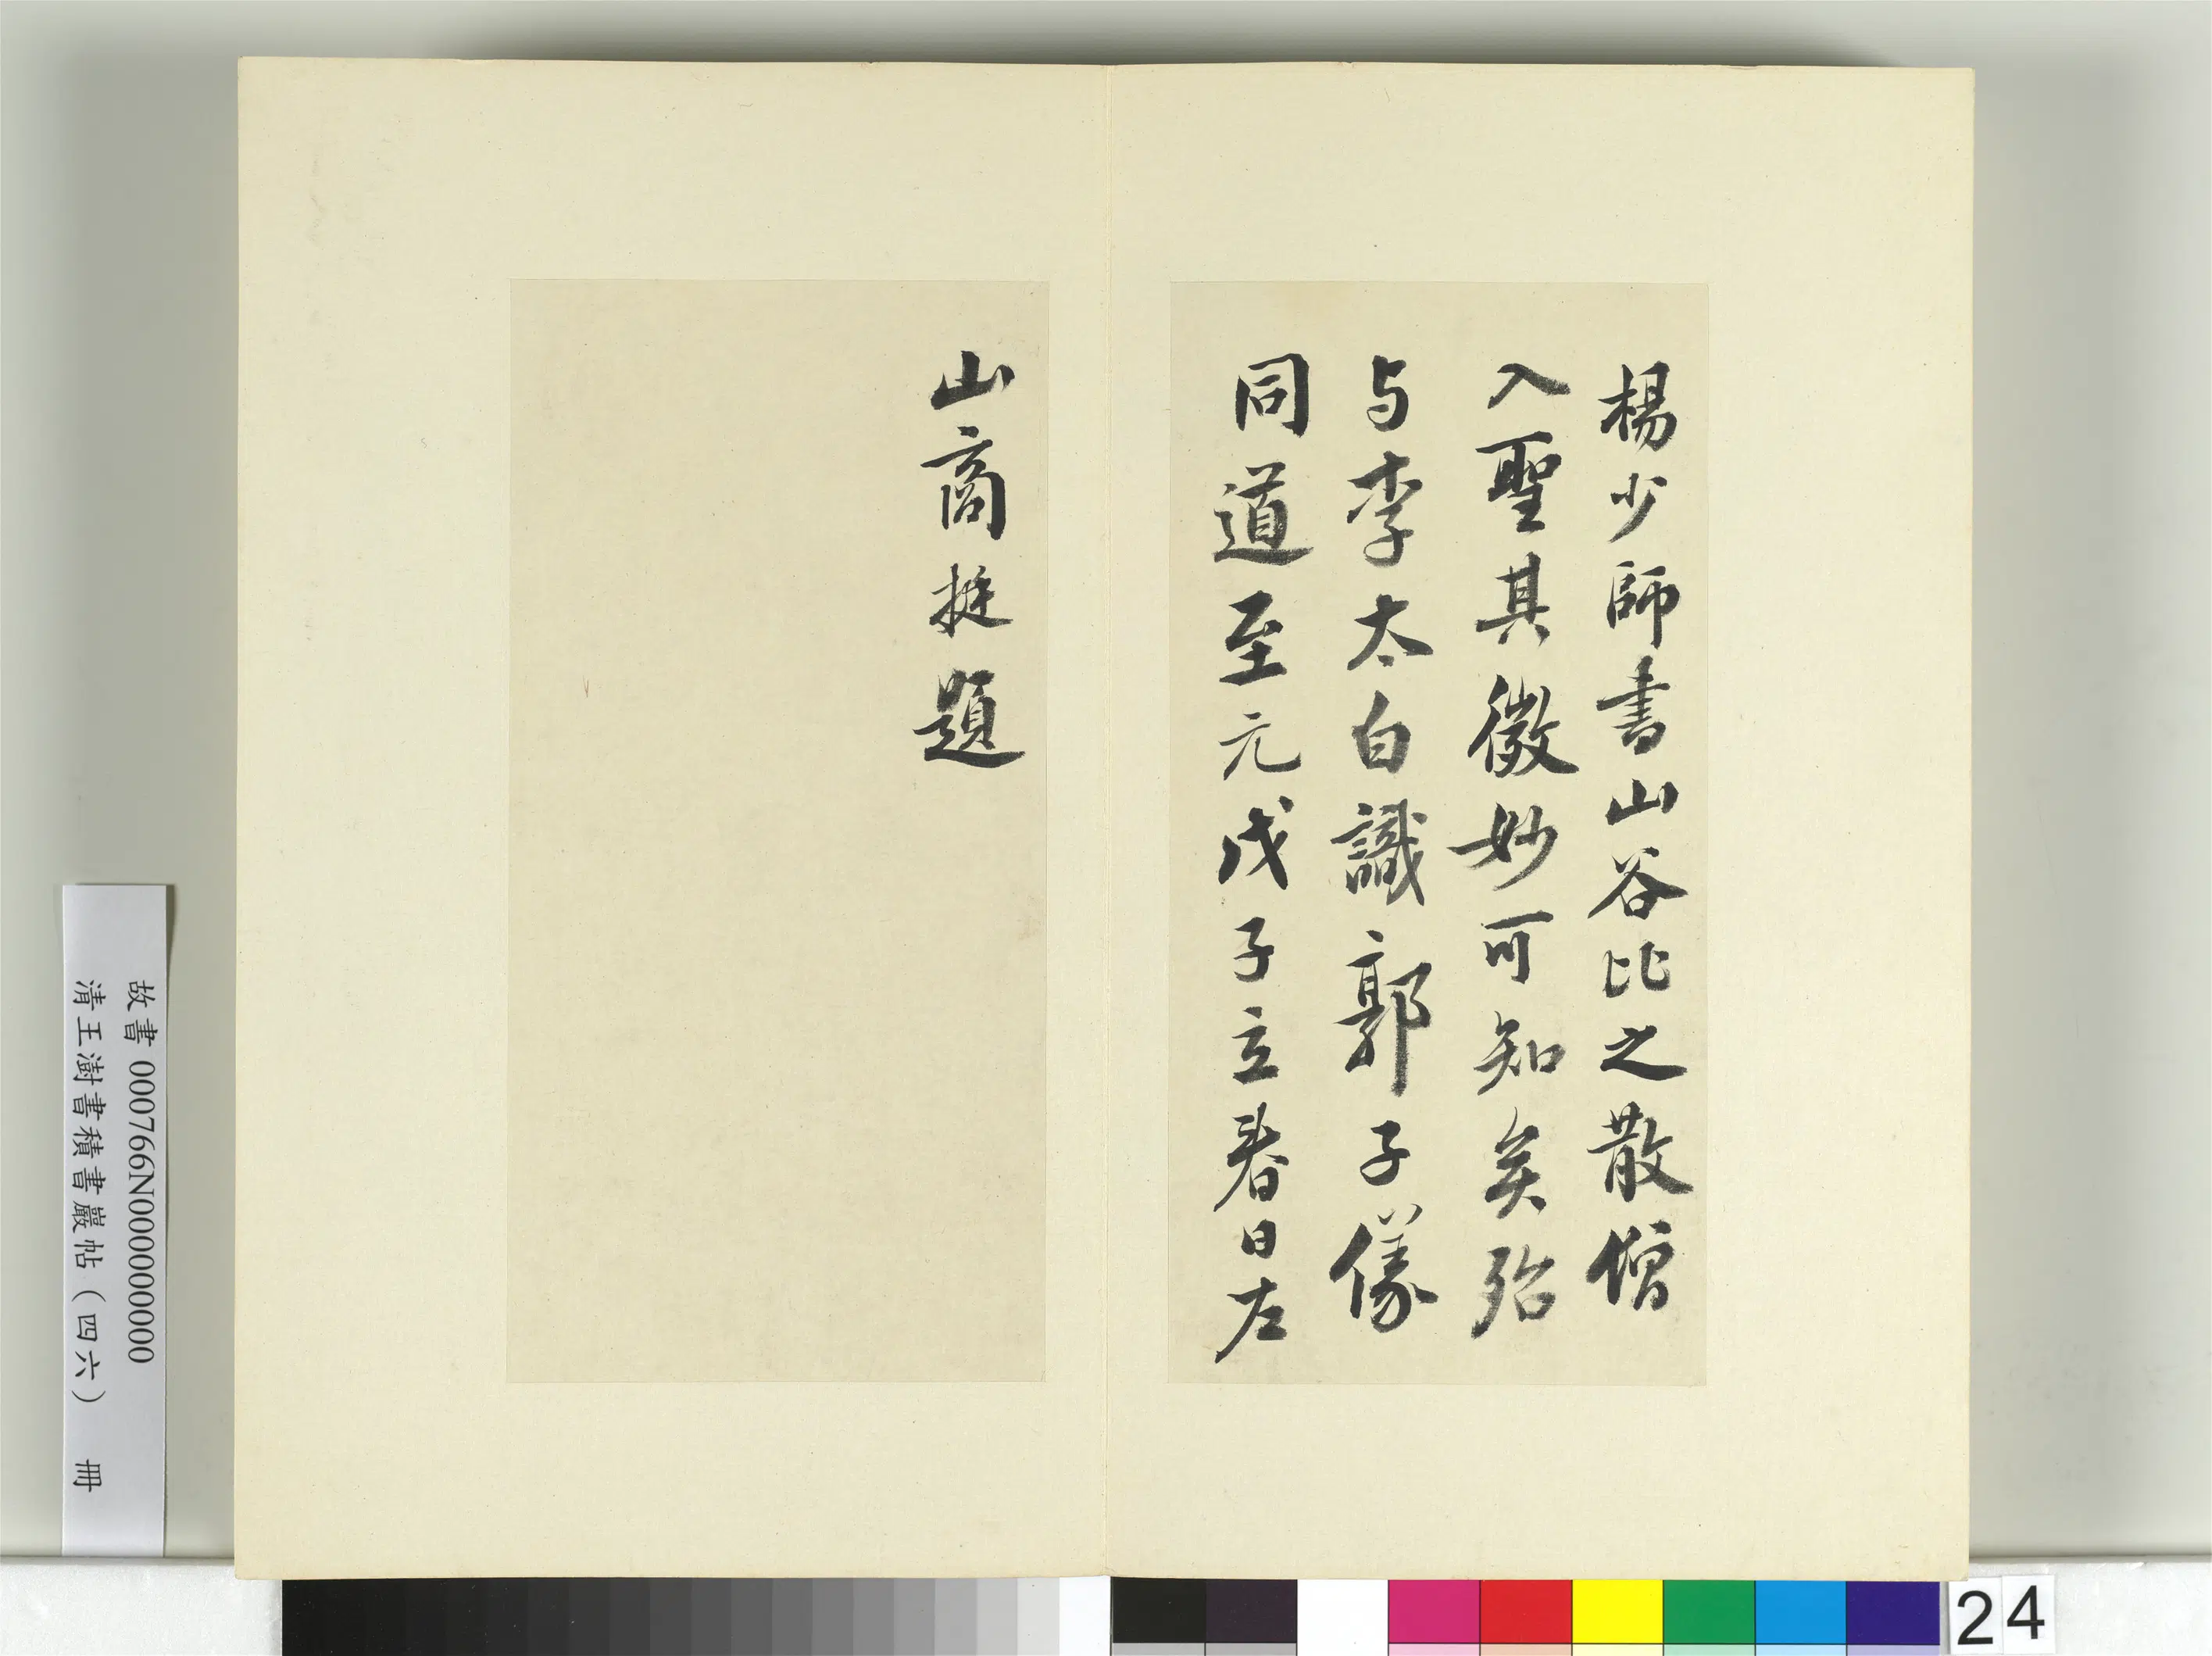 楊少師書山谷比之散僧
入聖其微妙可知矣殆
与李太白識郭子儀
同道至元戊子立春日左
山商挺題
故書 000766N000000000
清王澍書積書巖帖（四六） 冊
24